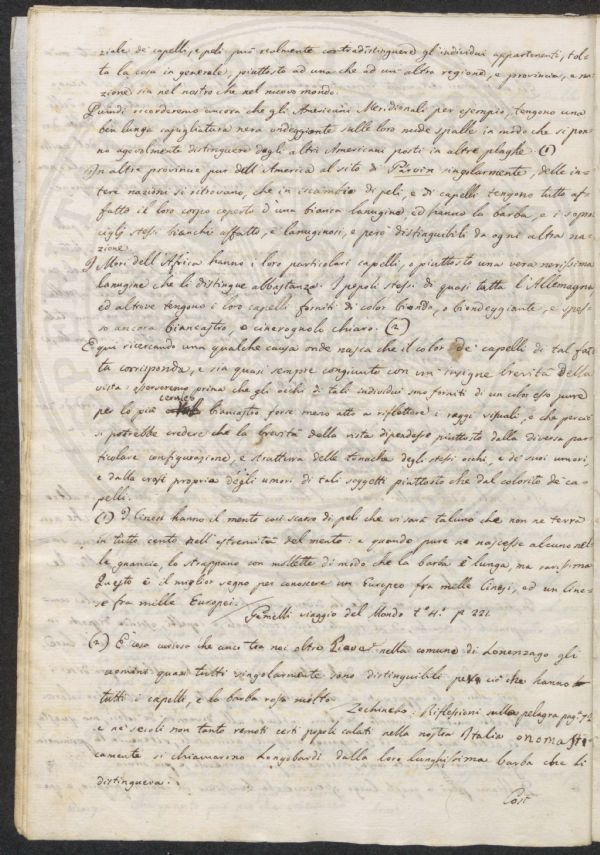 ziale de' capelli, e peli può realmente contradistinguere gl'individui appartenenti, tol-
ta la cosa in generale, piuttosto ad una che ad un' altra regione, e provincia, e na-
zione sia nel nostro che nel nuovo mondo.
Quindi ricorderemo ancora che gli Americani Meridionali per esempio, tengono una
ben lunga capigliatura nera ondeggiante sulle loro nude spalle in modo che si pon-
no agevolmente distinguere dagli altri Americani posti in altre plaghe. (1)
In altre provincie pur dell'America al sito di Parvin singolarmente, delle in-
tere nazioni si ritrovano, che in iscambio di peli, e di capelli tengono tutto af-
fatto il loro corpo coperto d'una bianca lanugine ed hanno la barba, e i sopra-
cigli stessi bianchi affatto, e lanuginosi, e però distinguibili da ogni altra na-
zione.
I Mori dell'Africa hanno i loro particolari capelli, o piuttosto una vera nerissima
lanugine che li distingue abbastanza. I popoli stessi di quasi tutta l'Allemagna,
ed altrove tengono i loro capelli forniti di color biondo, o biondeggiante, e spes-
so ancora biancastro, e cinerognolo chiaro. (2)
E qui ricercando una qualche causa onde nasca che il color de' capelli di tal fat-
ta corrisponda, e sia quasi sempre congiunto con un' insigne brevità della
vista: osserveremo prima che gli occhi di tali individui sono forniti di un color esso pure
per lo più ceruleo biancastro forse meno atto a riflettere i raggi visuali, e che perciò
si potrebbe credere che la brevità della vista dipendesse piuttosto dalla diversa par-
ticolare configurazione, e struttura delle tonache degli stessi occhi, e de' suoi umori,
e dalla crasi propria degli umori di tali soggetti piuttosto che dal colorito de' ca-
pelli.
(1) I Cinesi hanno il mento così scarso di peli che vi sarà taluno che non ne terrà
in tutto cento nell'estremità del mento: e quando pure ne nascesse alcuno nel-
le guancie, lo strappano con mollette di modo che la barba è lunga, ma rarissima
Questo è il miglior segno per conoscere un Europeo fra mille Cinesi, ed un Cine-
se fra mille Europei.
Gemelli viaggio del Mondo t.° 4.° p 221.
(2) È cosa curiosa che anco tra noi oltre Piave nella comune di Lorenzago gli
uomini quasi tutti singolarmente sono distinguibili per ciò che hanno
tutti i capelli, e la barba rossa molto.
Zechinelo: Riflessioni sulla pelagra pag. 72
e ne' secoli non tanto remoti certi popoli calati nella nostra Italia onomasti-
camente si chiamarono Longobardi dalla loro lunghissima barba che li
distingueva.
Così